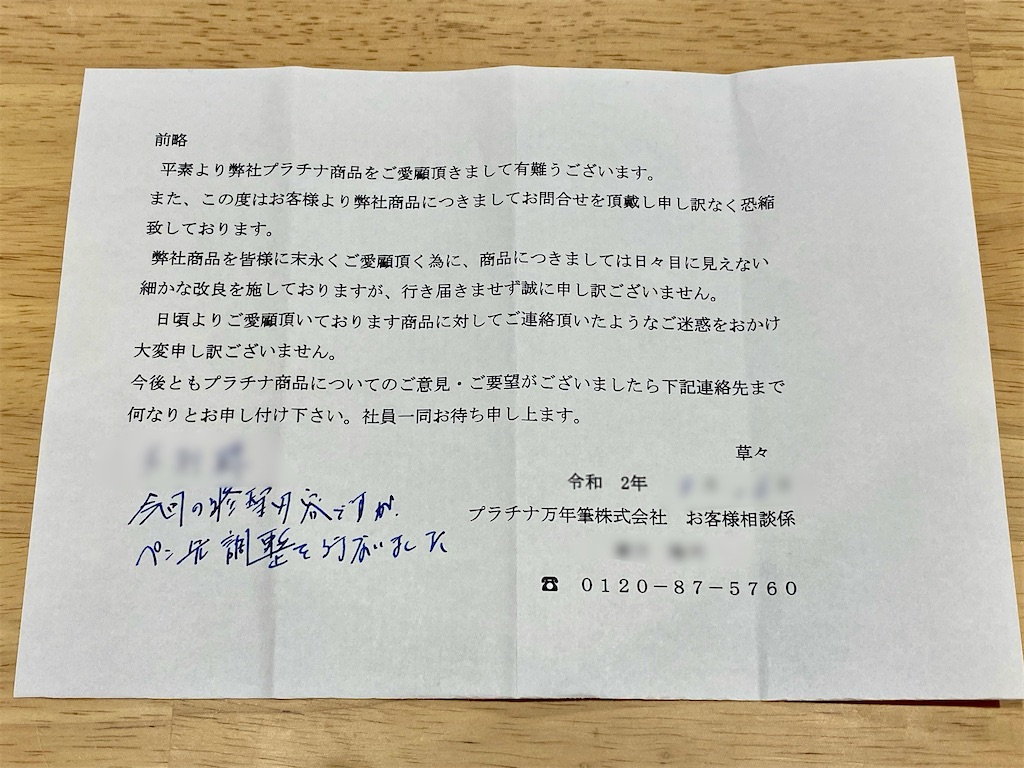 前略
平素より弊社プラチナ商品をご愛顧頂きまして有難うございます。
また、この度はお客様より弊社商品につきましてお問合せを頂戴し申し訳なく恐縮
致しております。
弊社商品を皆様に末永くご愛顧頂く為に、商品につきましては日々目に見えない
細かな改良を施しておりますが、行き届きませず誠に申し訳ございません。
日頃よりご愛顧頂いております商品に対してご連絡頂いたようなご迷惑をおかけ
大変申し訳ございません。
今後ともプラチナ商品についてのご意見・ご要望がございましたら下記連絡先まで
何なりとお申し付け下さい。社員一同お待ち申し上ます。
草々
令和 2年
プラチナ万年筆株式会社 お客様相談係
☎ 0120-87-5760
今回の修理内容ですが、
ペン先調整を行ないました